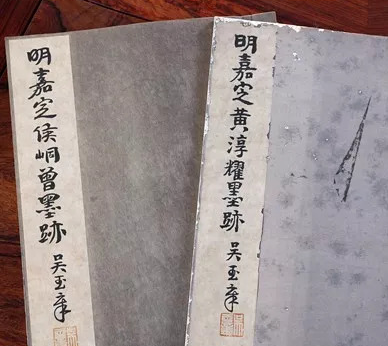 明嘉定侯峒曾墨跡 吴玉章
明嘉定黃淳耀墨跡 吴玉章